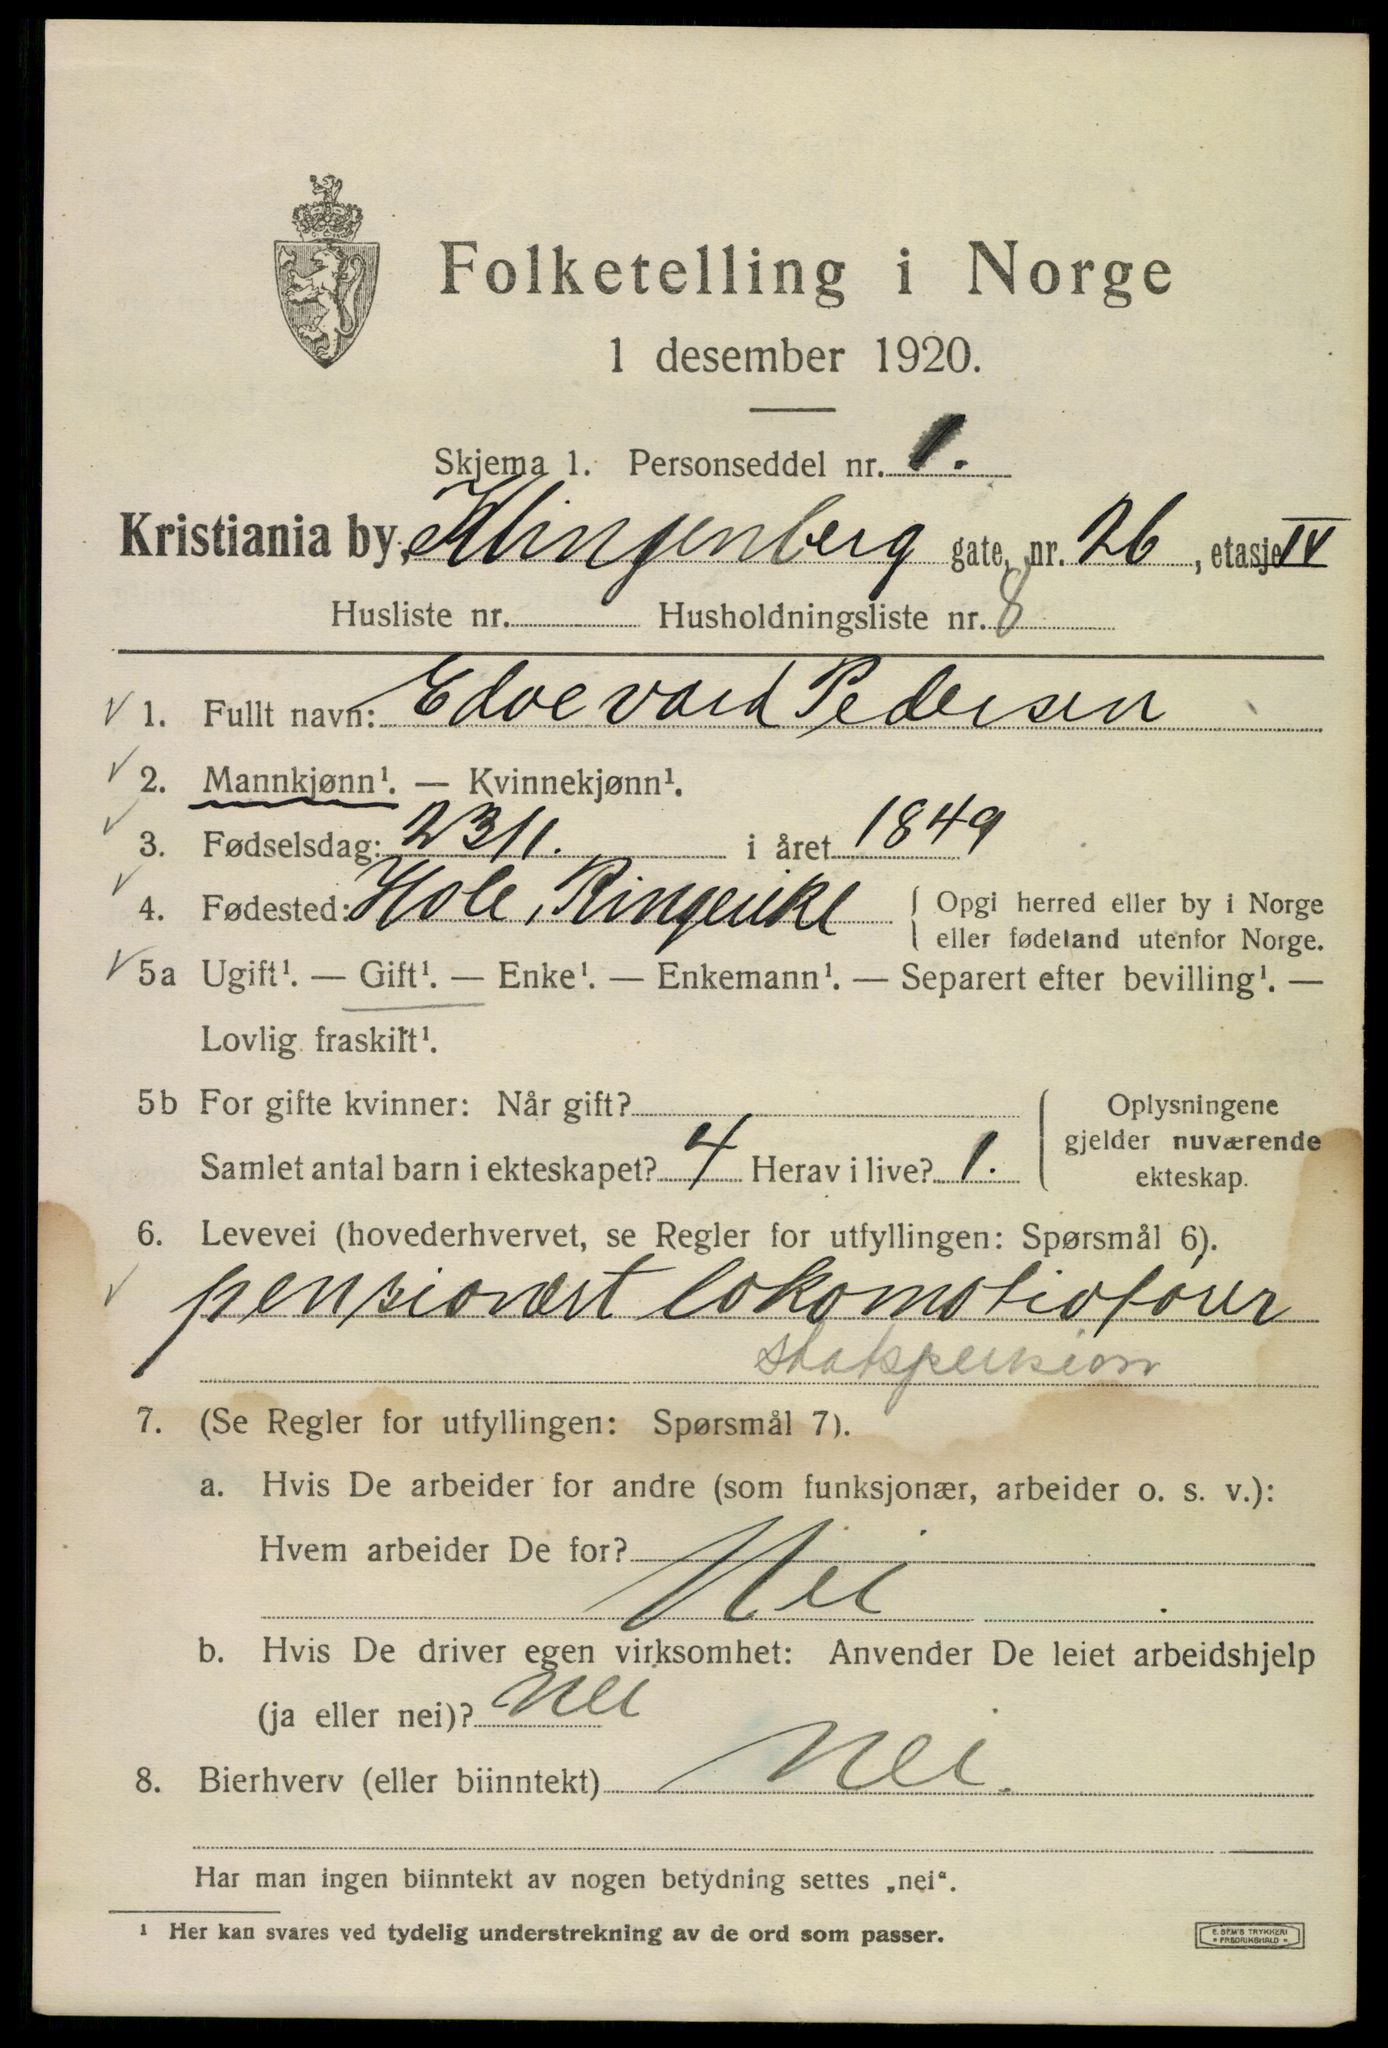 Folketelling i Norge
1 desember 1920.
Skjema 1. Personseddel nr. 1.
Kristiania by, Klingenberg gate, nr. 26, etasje IV
Husliste nr. Husholdningsliste nr. 8
1. Fullt navn: Edvevard Pedersen
2. Mannkjønn¹. — Kvinnekjønn¹.
3. Fødselsdag: 23/1. i året 1849
4. Fødested: Hole, Ringerike { Opgi herred eller by i Norge
eller fødeland utenfor Norge.
5a Ugift¹. — Gift¹. — Enke¹. — Enkemann¹. — Separert efter bevilling¹. —
Lovlig fraskilt¹.
5b For gifte kvinner: Når gift? Oplysningene
gjelder nuværende
Samlet antal barn i ekteskapet? 4 Herav i live? 1. ekteskap.
6. Levevei (hovederhvervet, se Regler for utfyllingen: Spørsmål 6).
pensionert lokomotivfører
statspension
7. (Se Regler for utfyllingen: Spørsmål 7).
a. Hvis De arbeider for andre (som funksjonær, arbeider o. s. v.):
Hvem arbeider De for? Nei
b. Hvis De driver egen virksomhet: Anvender De leiet arbeidshjelp
(ja eller nei)? nei
8. Bierhverv (eller biinntekt) nei.
Har man ingen biinntekt av nogen betydning settes „nei".
¹ Her kan svares ved tydelig understrekning av de ord som passer.
E. SEM'S TRYKKERI
FREDRIKSHALD